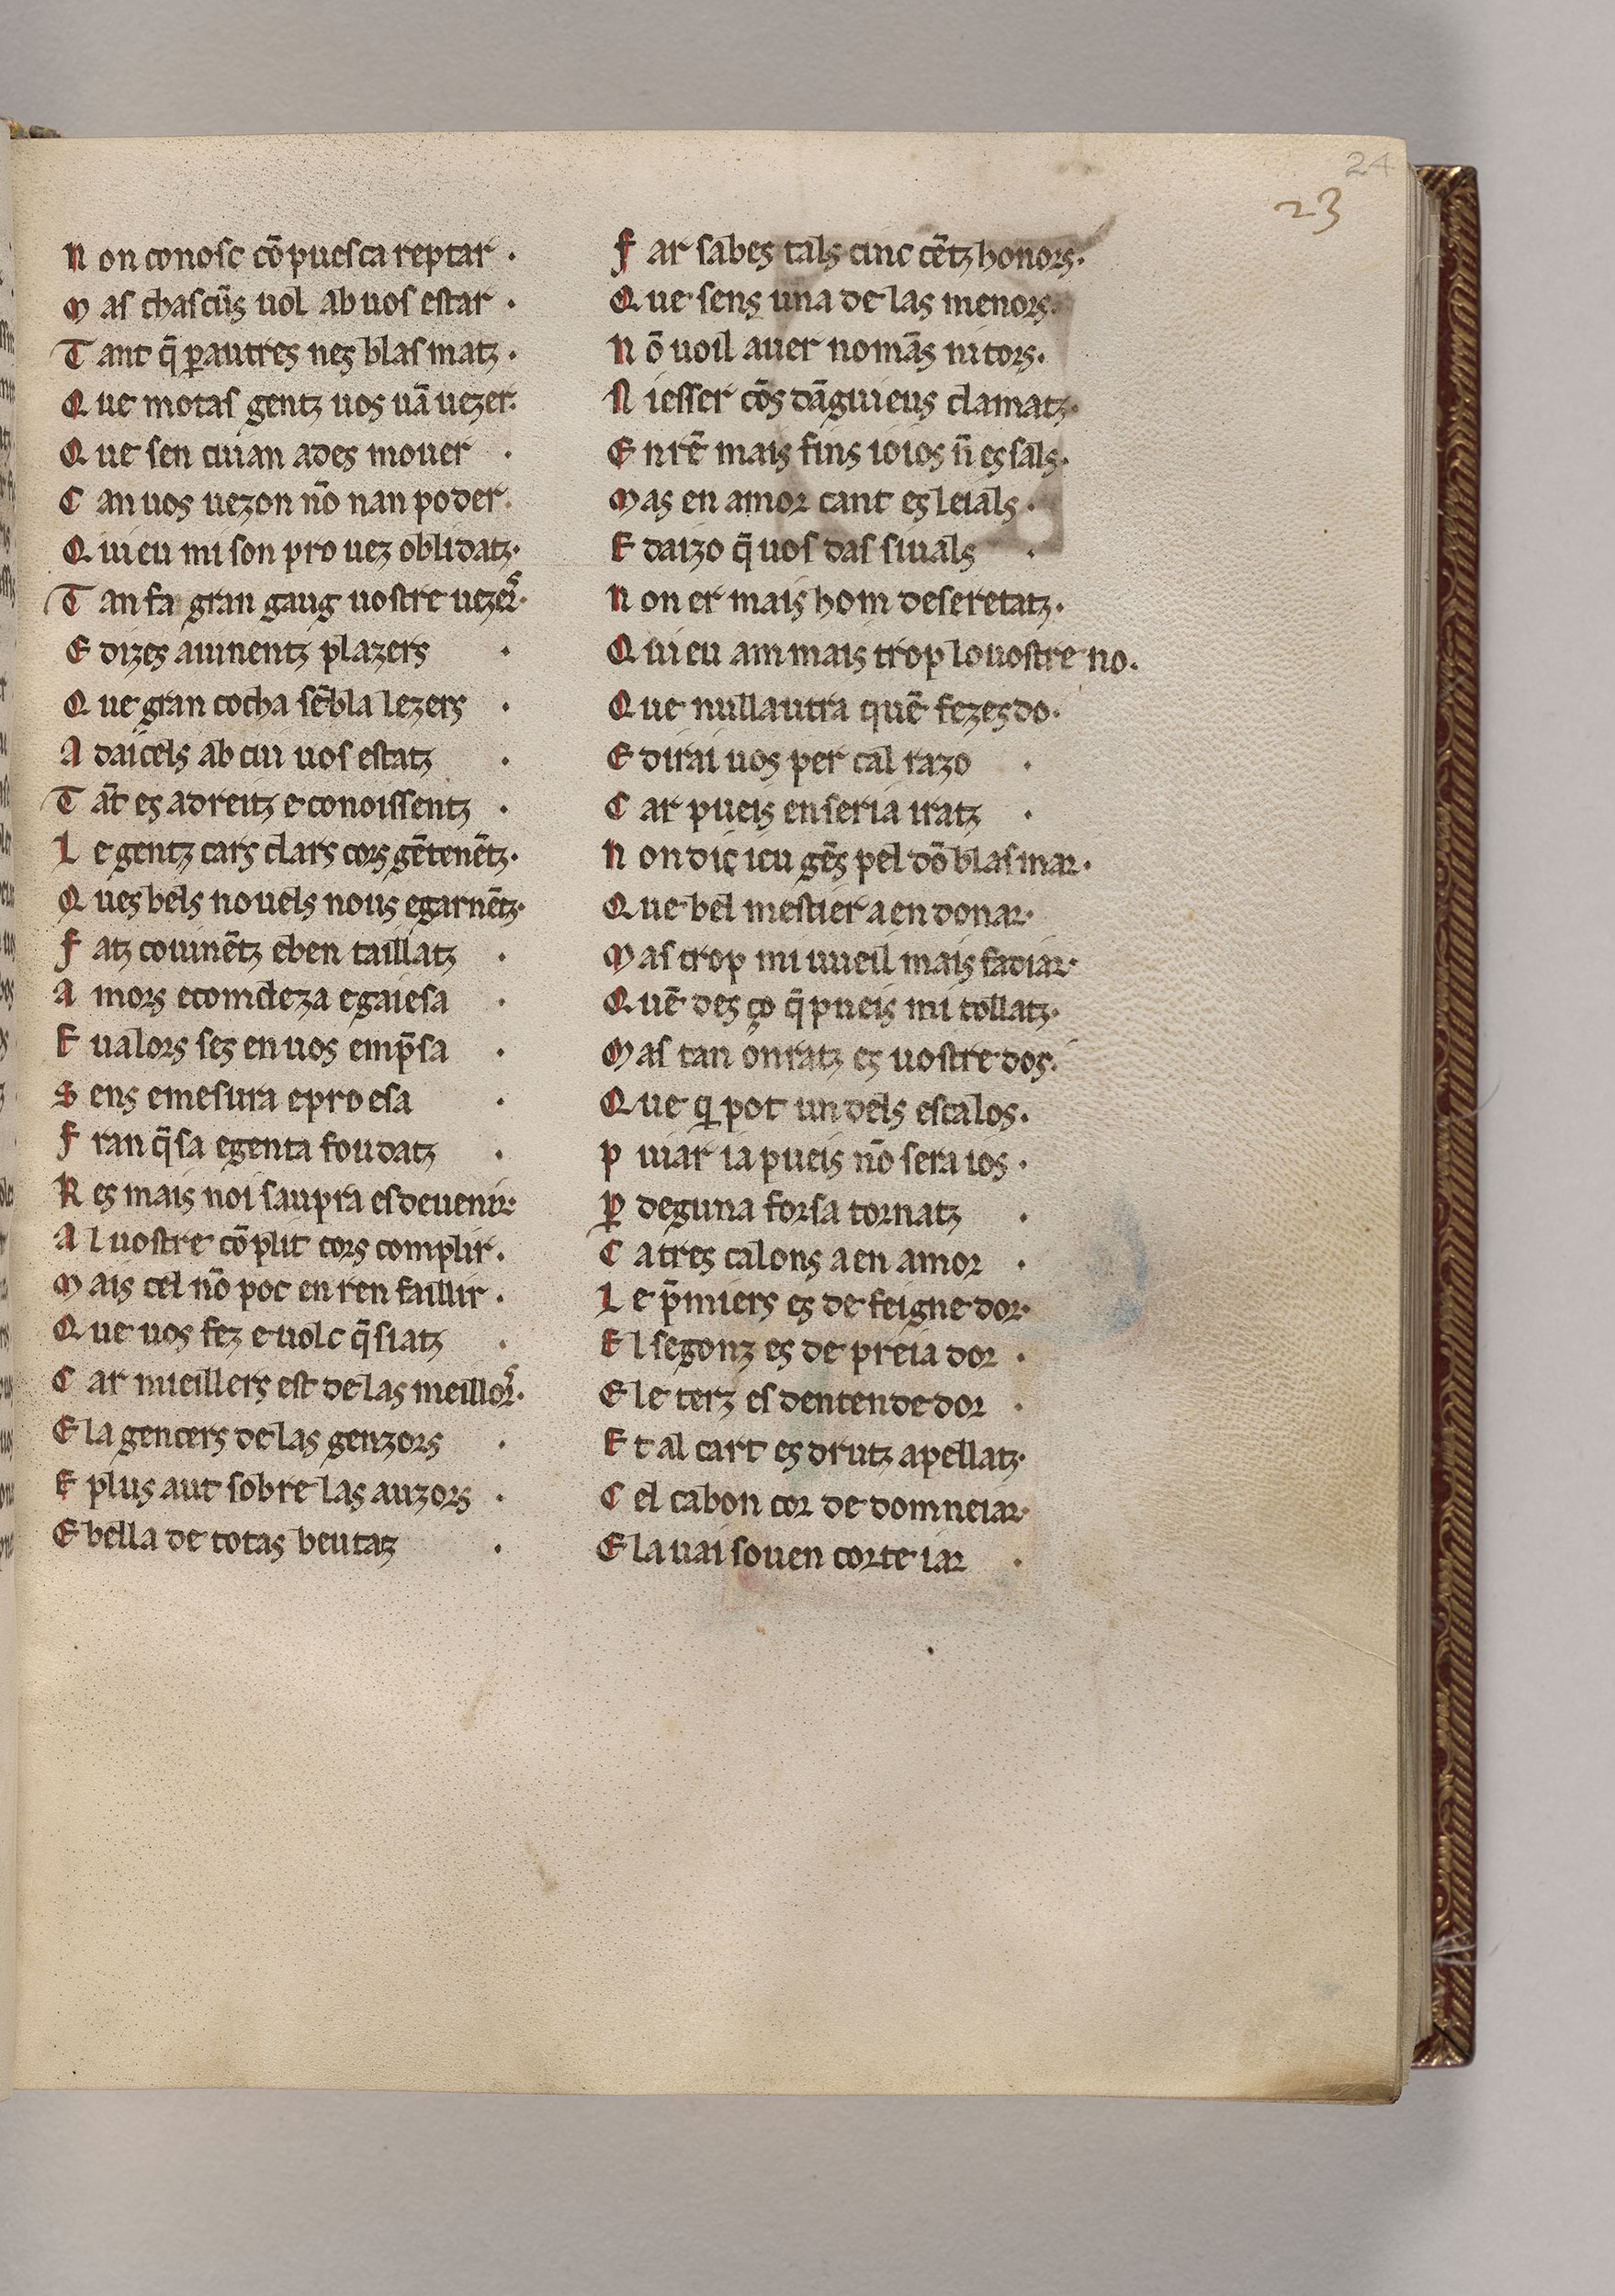 24
23
N on conosc cō puesca reptar ·
M as chascūs uol ab uos estar ·
T ant q̄ ꝑautres nes blasmatz ·
Q ue motas gentz uos uā uezer·
Q ue sen cuian ades mouer ·
C an uos uezon nō nan poder·
Q uieu mi son pro uez oblidatz·
T an fa gran gaug uostre uezer̄s·
E dizes auinentz plazers ·
Q ue gran cocha sēbla lezers ·
A daicels ab cui uos estatz ·
T āt es adreitz e conoissentz ·
L e gentz cars clars cors gētenētz·
Q ues bels nouels nous egarnētz·
F atz couinētz eben taillatz ·
A mors ecomdeza egaiesa ·
E ualors ses en uos emp̄sa ·
S ens emesura eproesa ·
F ran q̄sa egenta foudatz ·
R es mais noi saupra esdeuenir·
A l uostre cōplit cors complir·
M ais cel nō poc en ren faillir·
Q ue uos fez euolc q̄ siatz ·
C ar mieillers est delas meillors·
E la gencers delas genzors ·
E plus aut sobre las auzors ·
E bella de totas beutatz ·
F ar sabes tals cinc cētz honors·
Q ue sens una de las menors·
N ō uoil auer nomās ni tors·
N iesser cōs dāguieus clamatz·
E n rē mais fins ioios n̄ es sals·
M as en amor tant es leials·
E daizo q̄ uos das siuals ·
N on er mais hom deseretatz·
Q uieu am mais trop lo uostre no·
Q ue nullautra quē fezes do·
E dirai uos per cal razo ·
C ar pueis en seria iratz ·
N on dic ieu gēs pel dō blasmar·
Q ue bel mestier a en donar·
M as trop mi uueil mais fadiar·
Q uē des ço q̄ pueis mi tollatz·
M as tan onratz es uostre dos·
Q ue q̇ pot un dels escalos·
P uiar ia pueis nō sera ios·
ꝑ deguna forsa tornatz ·
C atres calons a en amor ·
L e p̄miers es de feignedor·
E l segonz es de preiador ·
E le terz es dentendedor ·
E t al cart es drutz apellatz·
C el cabon cor de domneiar·
E la uai souen corteiar ·